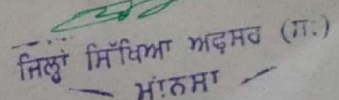 ਜਿਲ੍ਹਾਂ ਸਿੱਖਿਆ ਅਫ਼ਸਰ (ਸ:)
ਮਾਨਸਾ